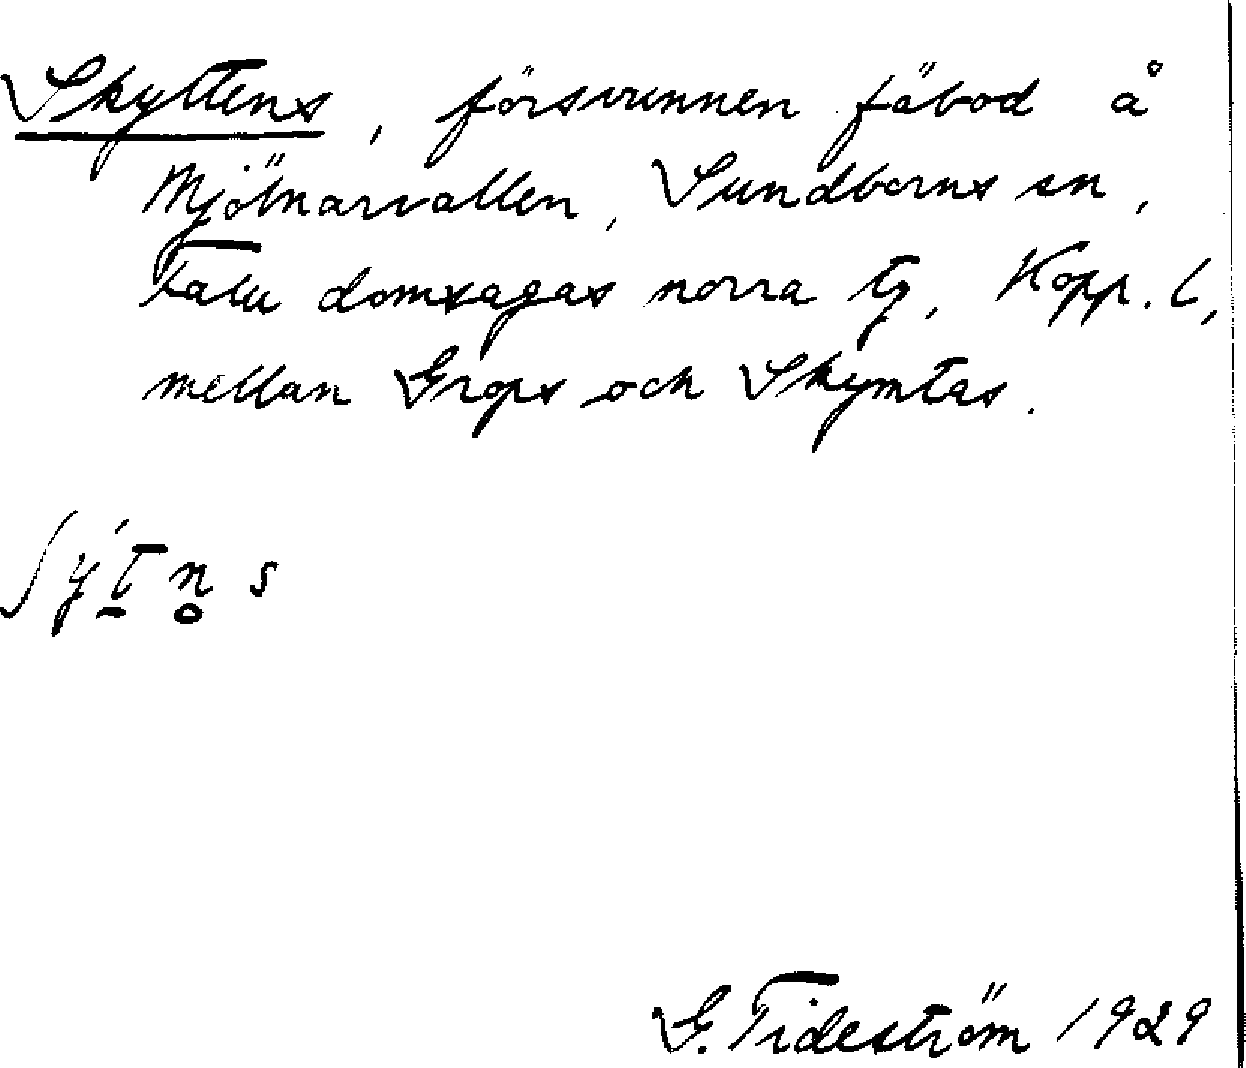 Skyttens, försvunnen fäbod å
Mjölnarvallen, Sundborns sn,
Falu domsagas norra tg, Kopp. l,
mellan Grops och Skymtas.
ʃýt̠n̥s
G. Tideström 1929